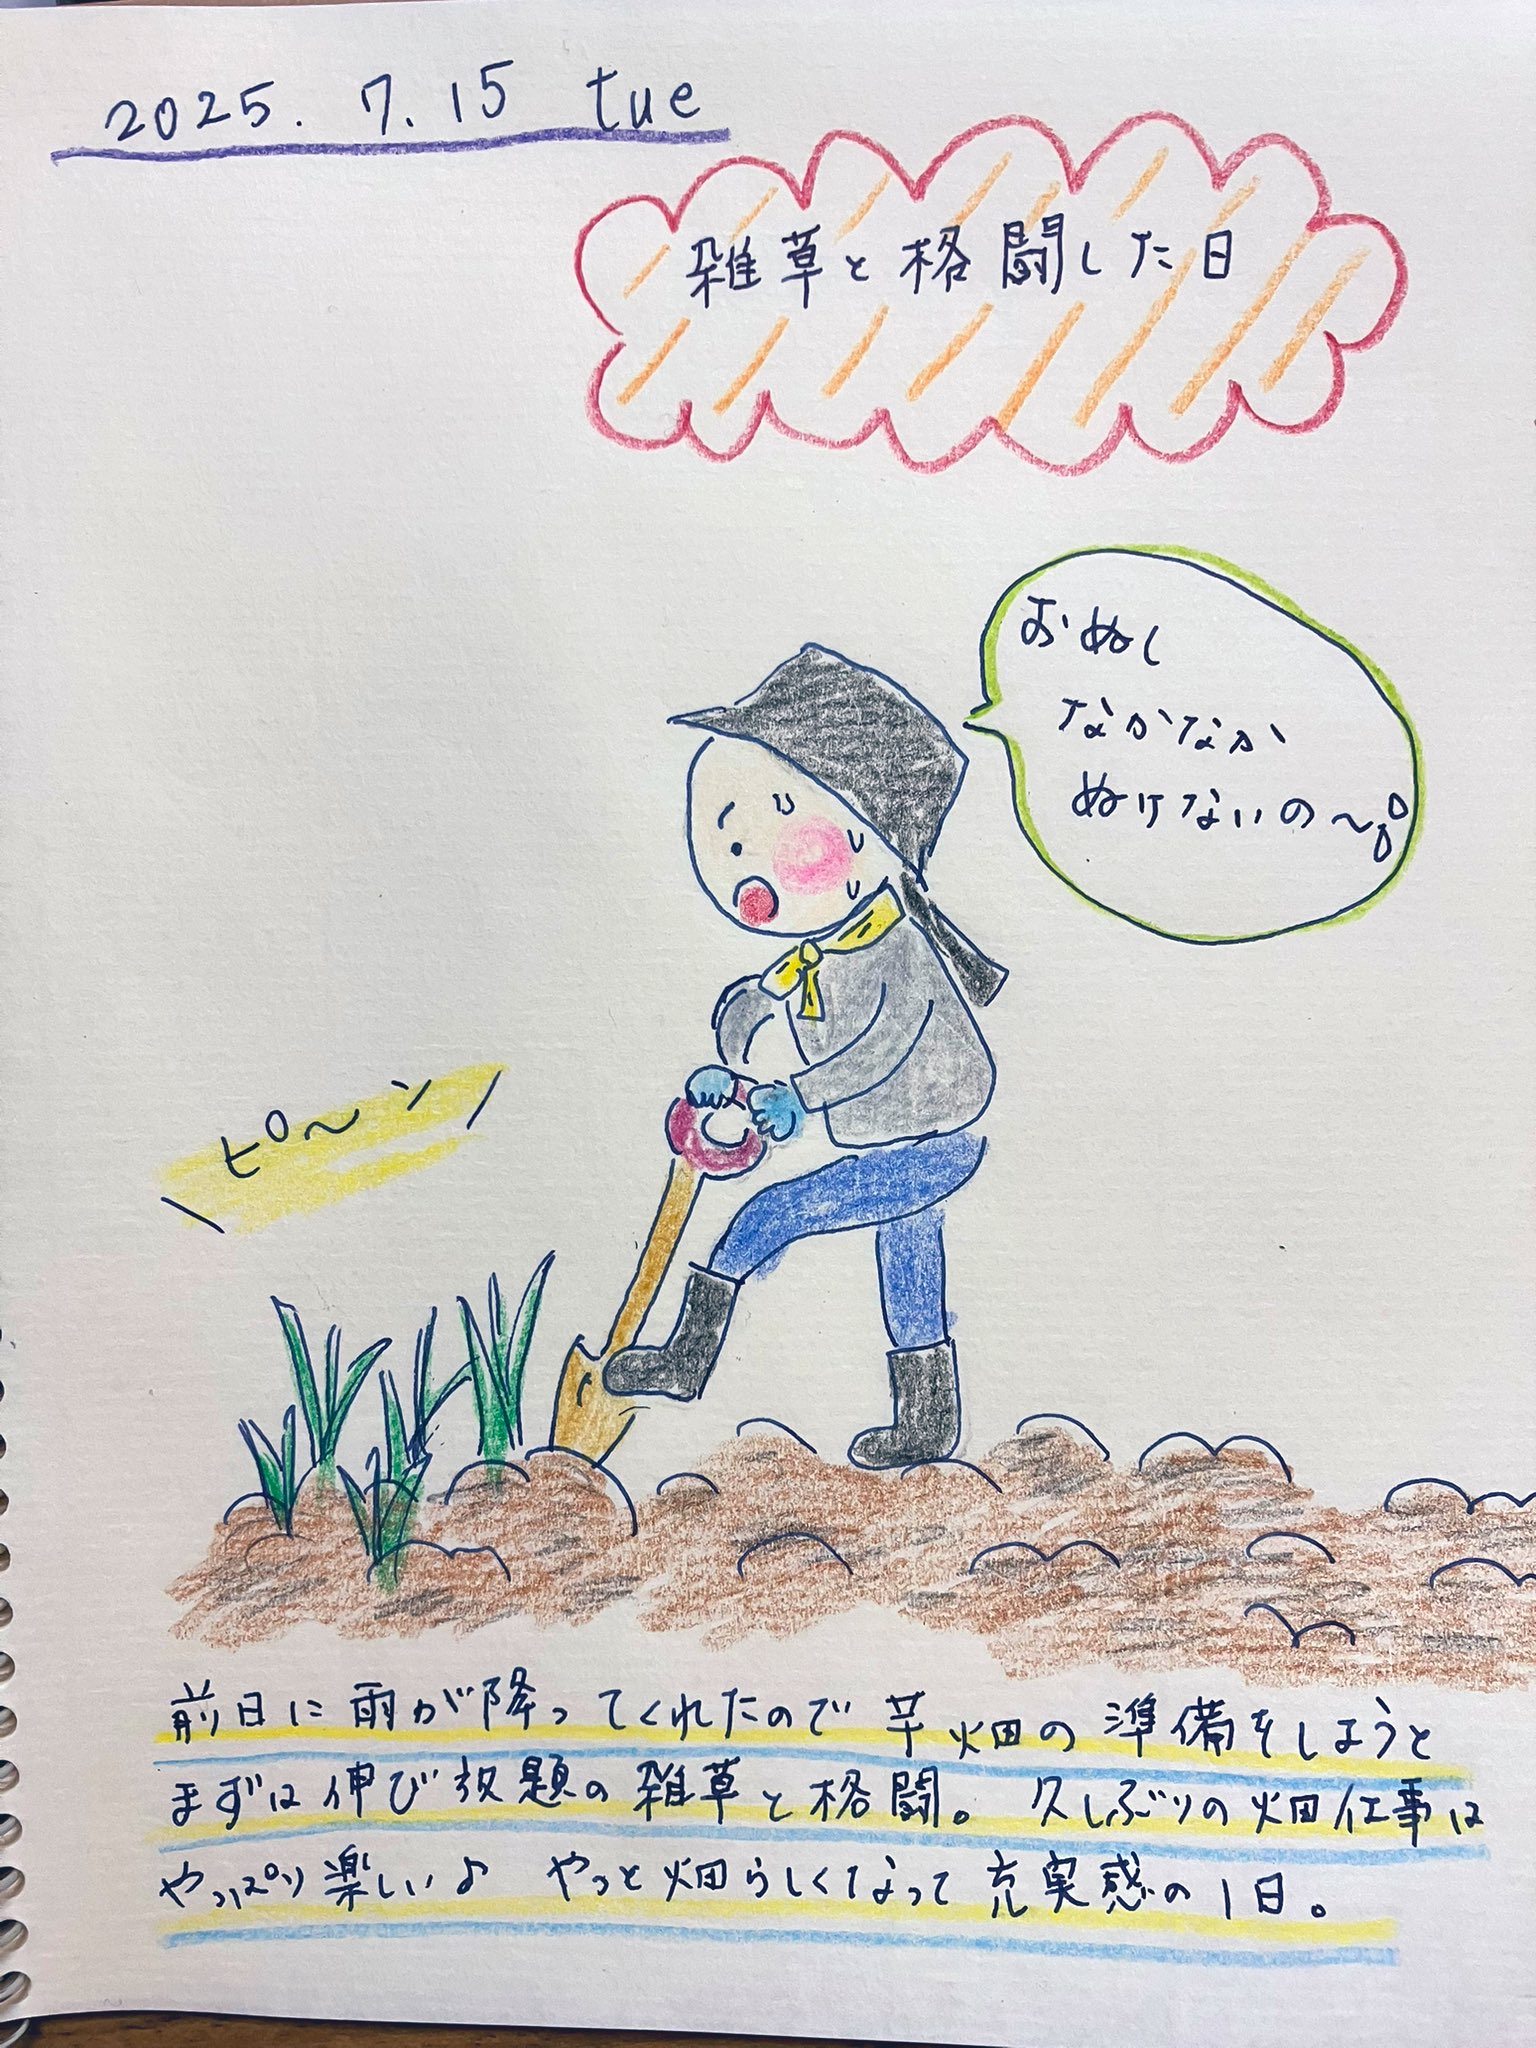 2025. 7. 15 tue
雑草と格闘した日
おぬし
なかなか
ぬけないの〜
ピ〜ン
前日に雨が降ってくれたので芋畑の準備をしようと
まずは伸び放題の雑草と格闘。久しぶりの畑仕事は
やっぱり楽しい♪ やっと畑らしくなって充実感の1日。